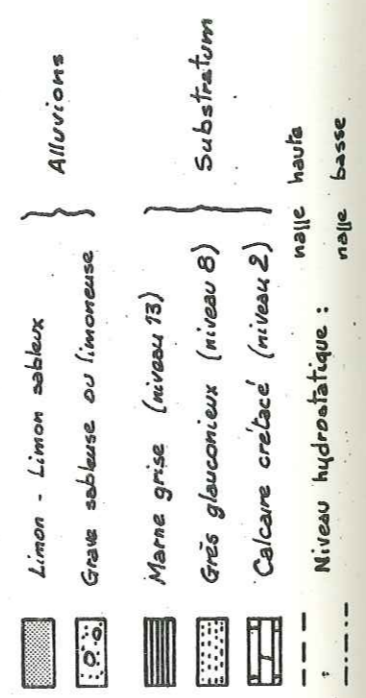 Limon - Limon sableux
Grave sableuse ou limoneuse
Alluvions
Marne grise (niveau 13)
Grès glauconieux (niveau 8)
Calcaire crétacé (niveau 2)
Substratum
Niveau hydrostatique :
nappe haute
nappe basse